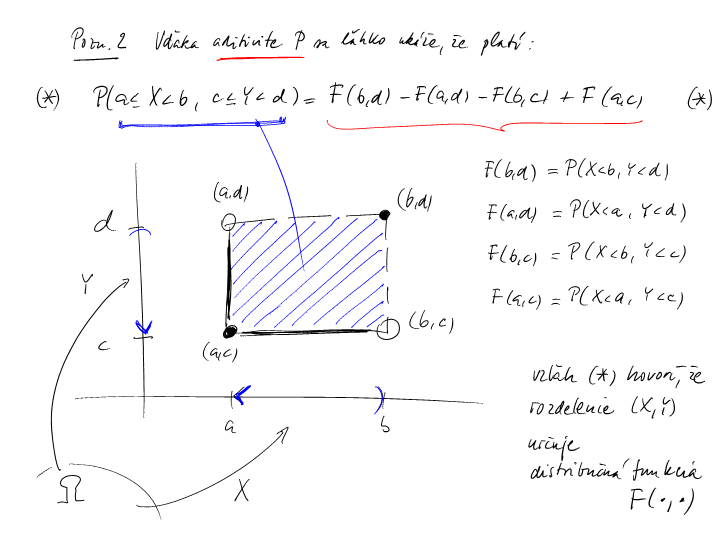 Pozn. 2 Vďaka aditivite P sa ľahko ukáže, že platí:
(*) P(a ≤ X < b, c ≤ Y < d) = F(b,d) - F(a,d) - F(b,c) + F(a,c) (*)
F(b,d) = P(X<b, Y<d)
F(a,d) = P(X<a, Y<d)
F(b,c) = P(X<b, Y<c)
F(a,c) = P(X<a, Y<c)
(a,d) (b,d)
d
Y
c
(a,c) (b,c)
a b
Ω X
vzťah (*) hovorí, že
rozdelenie (X,Y)
určuje
distribučná funkcia
F(·,·)